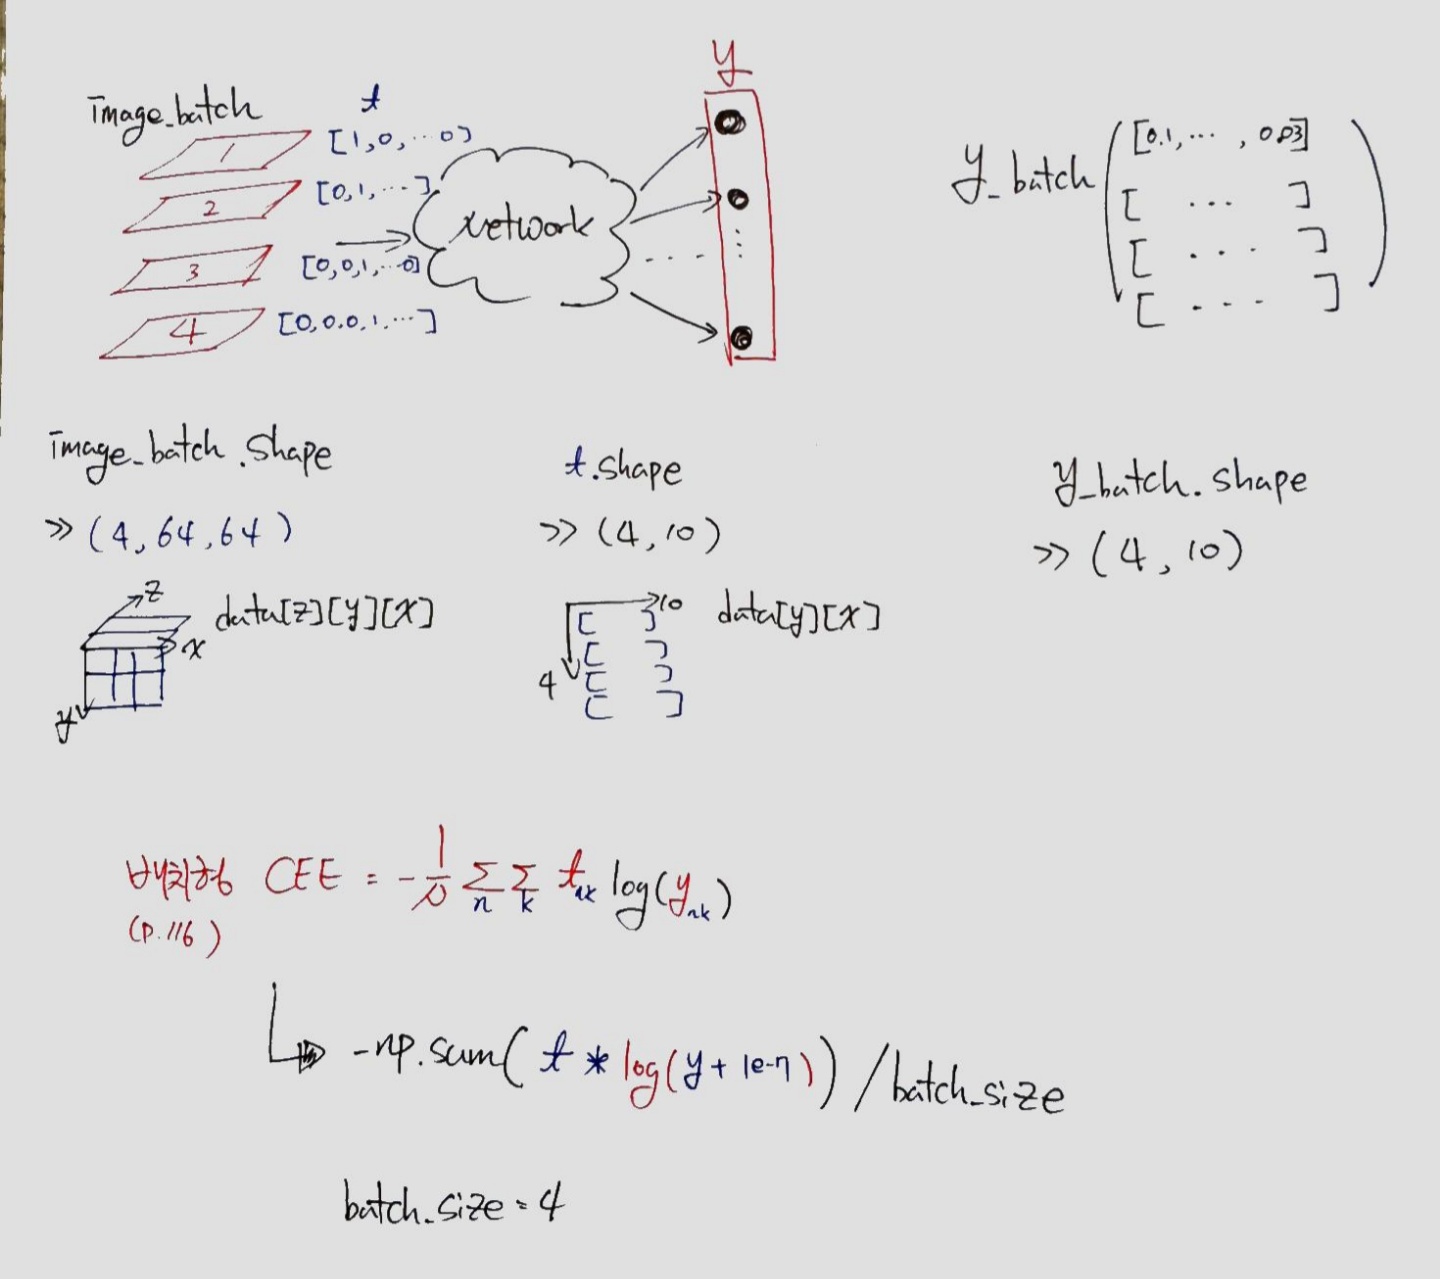 image_batch
t
y
1
[1,0,...0)
2
[0,1,...]
3
[0,0,1,...0]
4
[0,0.0,1,...]
network
y_batch
[0.1,... , 0.03]
[ ... ]
[ ... ]
[ ... ]
image_batch.shape
>> (4,64,64)
z
x
y
data[z][y][x]
t.shape
>> (4,10)
10
4
[ ]
[ ]
[ ]
[ ]
data[y][x]
y_batch.shape
>> (4,10)
배치형 CEE = -1/N Σn Σk tnk log(ynk)
(p.116)
-np.sum(t*log(y+1e-7))/batch_size
batch_size=4